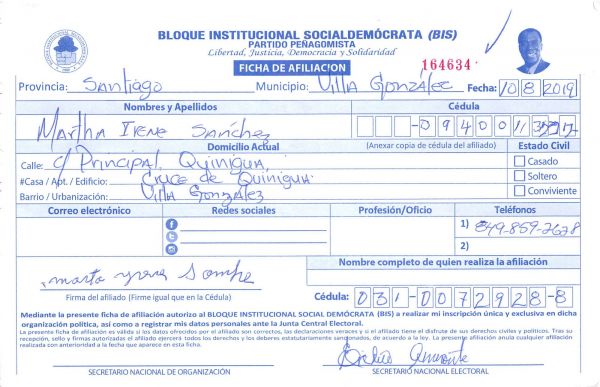 BLOQUE INSTITUCIONAL SOCIALDEMÓCRATA (BIS)
PARTIDO PEÑAGOMISTA
Libertad, Justicia, Democracia y Solidaridad
FICHA DE AFILIACIÓN
164634
Provincia: Santiago Municipio: Villa González Fecha: 10/8/2019
Nombres y Apellidos Cédula
Martha Irene Sánchez
Domicilio Actual (Anexar copia de cédula del afiliado) Estado Civil
Calle: c/ Principal Quinigua, Casado
#Casa / Apt. / Edificio: Cruce de Quinigua. Soltero
Barrio / Urbanización: Villa González Conviviente
Correo electrónico Redes sociales Profesión/Oficio Teléfonos
1) 849-859-2628
2)
Nombre completo de quien realiza la afiliación
Firma del afiliado (Firme igual que en la Cédula) Cédula: 031-0072928-8
Mediante la presente ficha de afiliación autorizo al BLOQUE INSTITUCIONAL SOCIAL DEMÓCRATA (BIS) a realizar mi inscripción única y exclusiva en dicha
organización política, así como a registrar mis datos personales ante la Junta Central Electoral.
La presente ficha de afiliación es válida si los datos ofrecidos por el afiliado son correctos, las declaraciones veraces y si el afiliado tiene el disfrute de sus derechos civiles y políticos. Tras su
recepción, sello y firmas autorizadas el afiliado ejercerá todos los derechos y los deberes estatutariamente sancionados, de acuerdo a la ley. La presente afiliación anula cualquier afiliación
realizada con anterioridad a la fecha que aparece en esta ficha.
SECRETARIO NACIONAL DE ORGANIZACIÓN SECRETARIO NACIONAL ELECTORAL